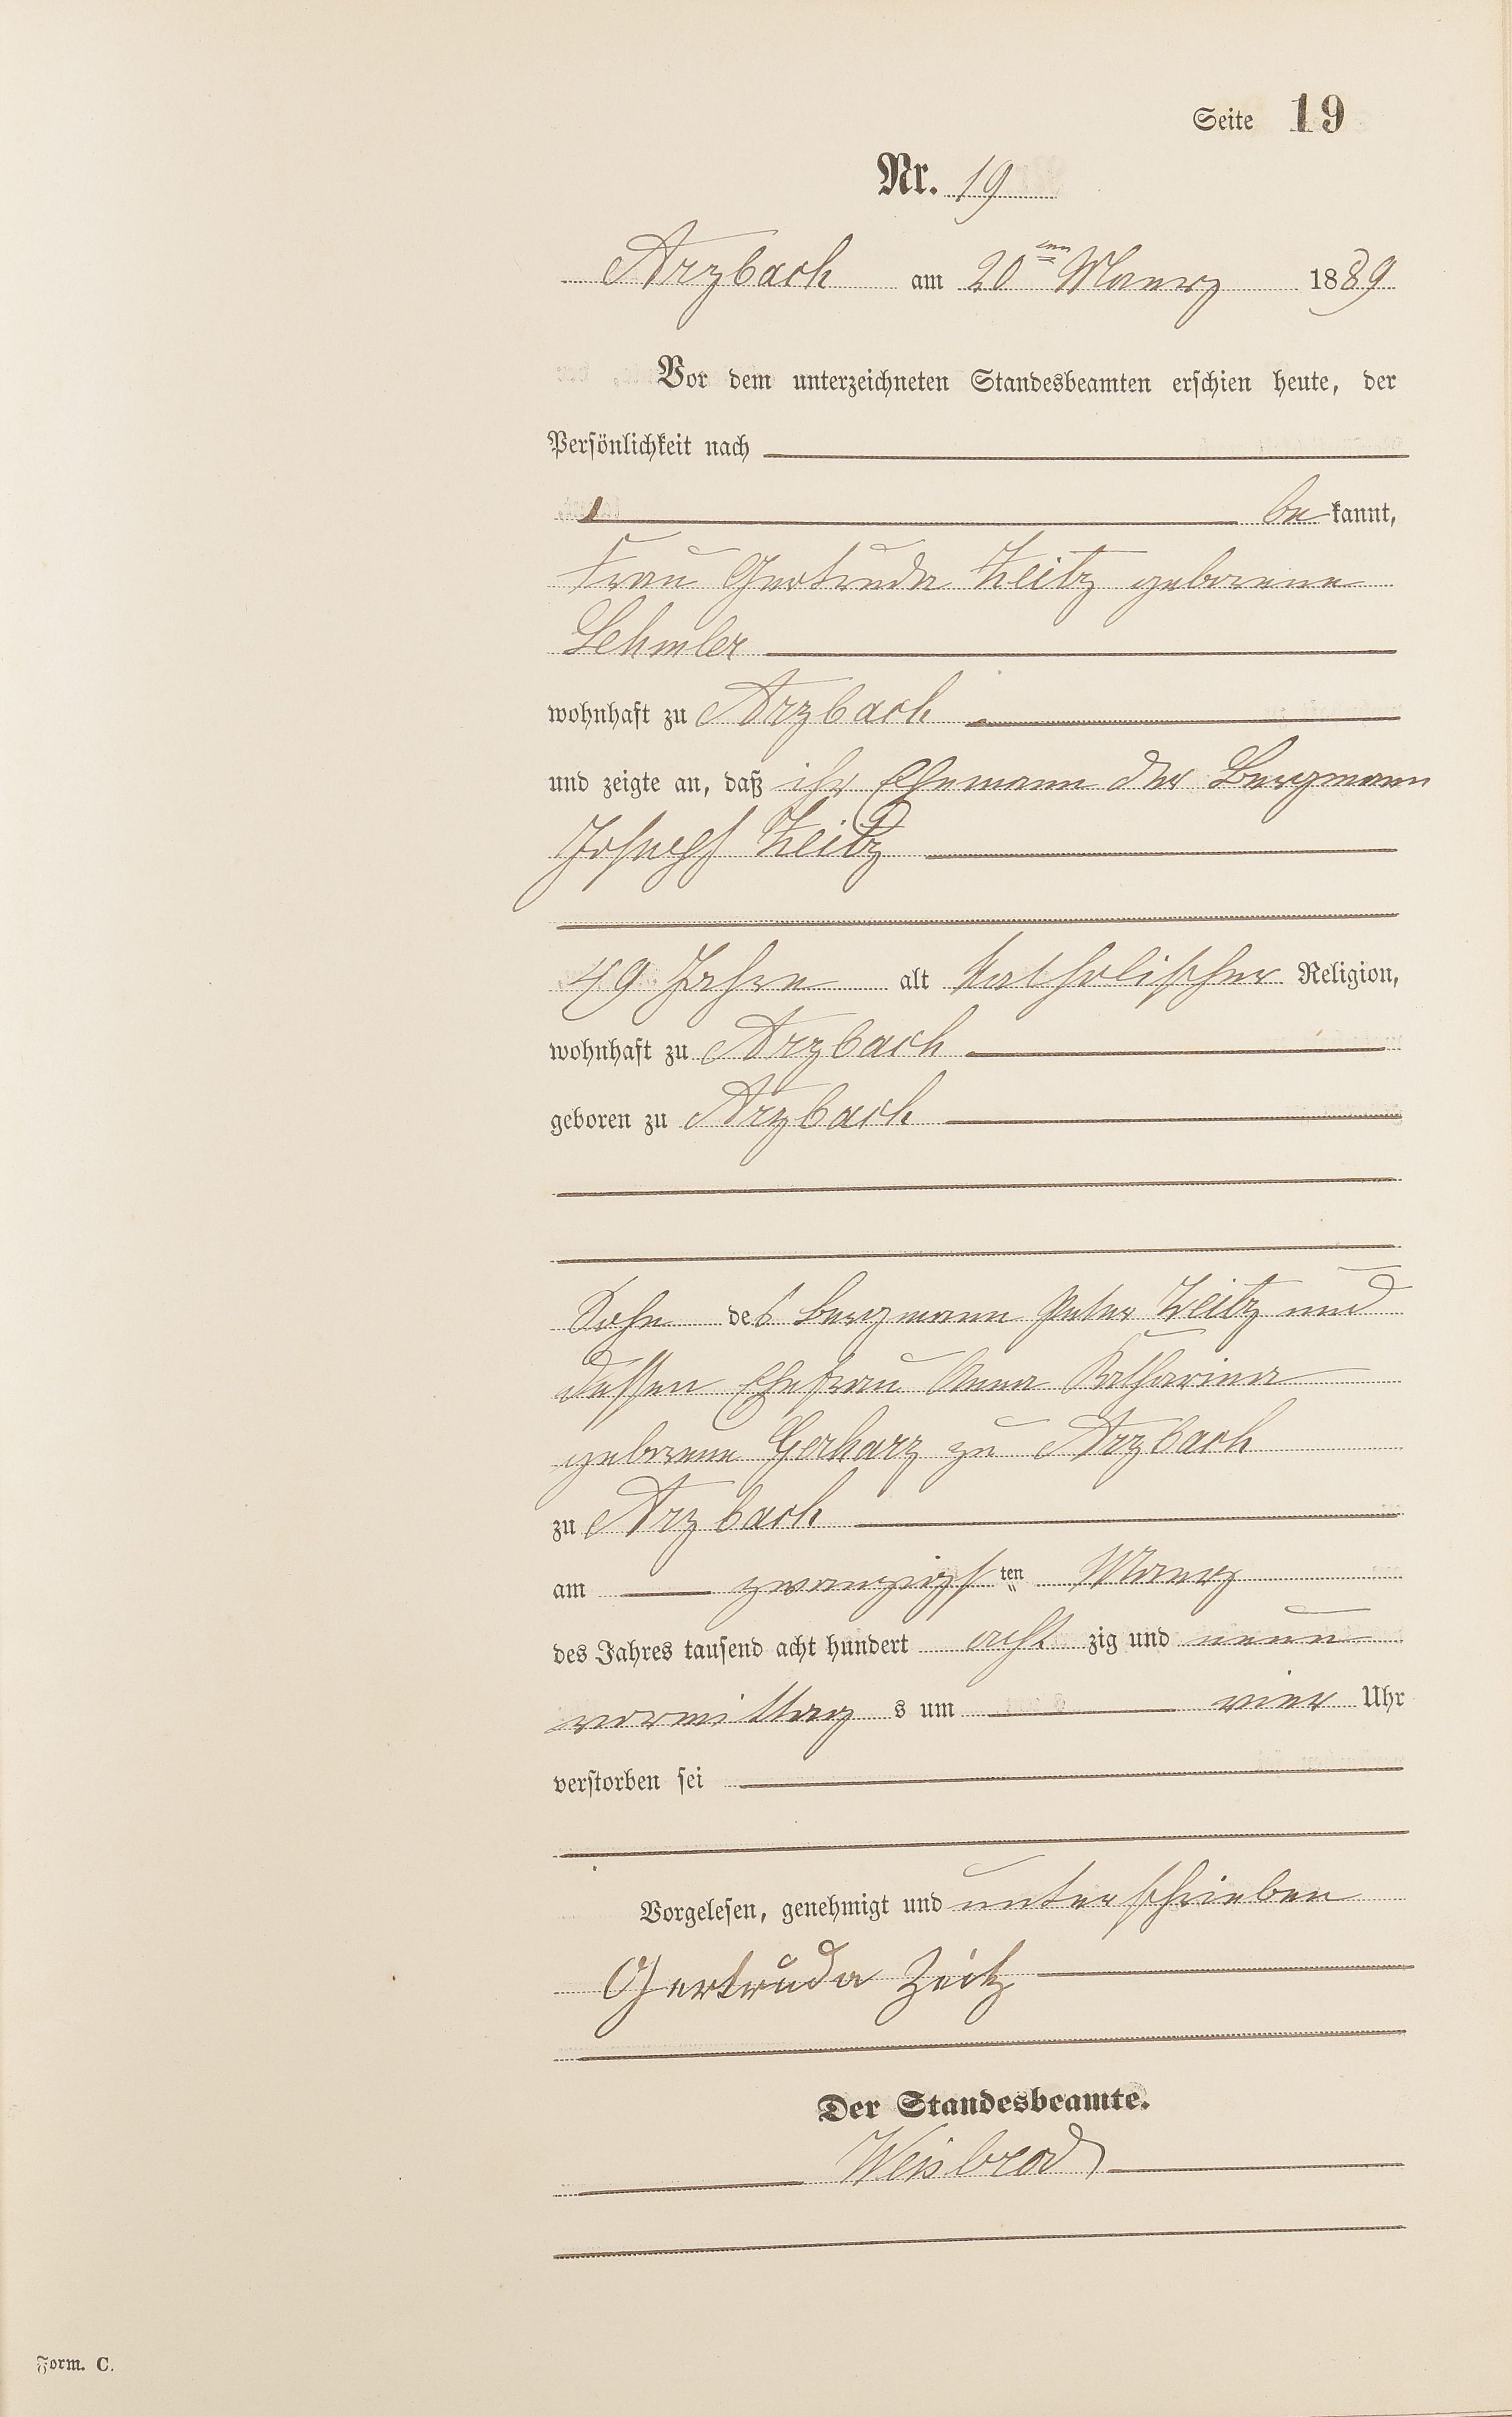 Seite 19
Nr. 19
Arzbach am 20ten Maerz 1889
Vor dem unterzeichneten Standesbeamten erschien heute, der
Persönlichkeit nach
be kannt,
Frau Gertruda Zeitz geborene
Lehmler
wohnhaft zu Arzbach
und zeigte an, daß ihr Ehemann der Bergmann
Joseph Zeitz
49 Jahre alt katholischer Religion,
wohnhaft zu Arzbach
geboren zu Arzbach
Sohn des Bergmann Peter Zeitz und
dessen Ehefrau Anna Katharina
geborene Gerharz zu Arzbach
zu Arzbach
am zwanzigsten Maerz
des Jahres tausend acht hundert acht zig und neun
vormittag s um vier Uhr
verstorben sei
Vorgelesen, genehmigt und unterschrieben
Gertruda Zeitz
Der Standesbeamte.
Weisbrod
Form. C.